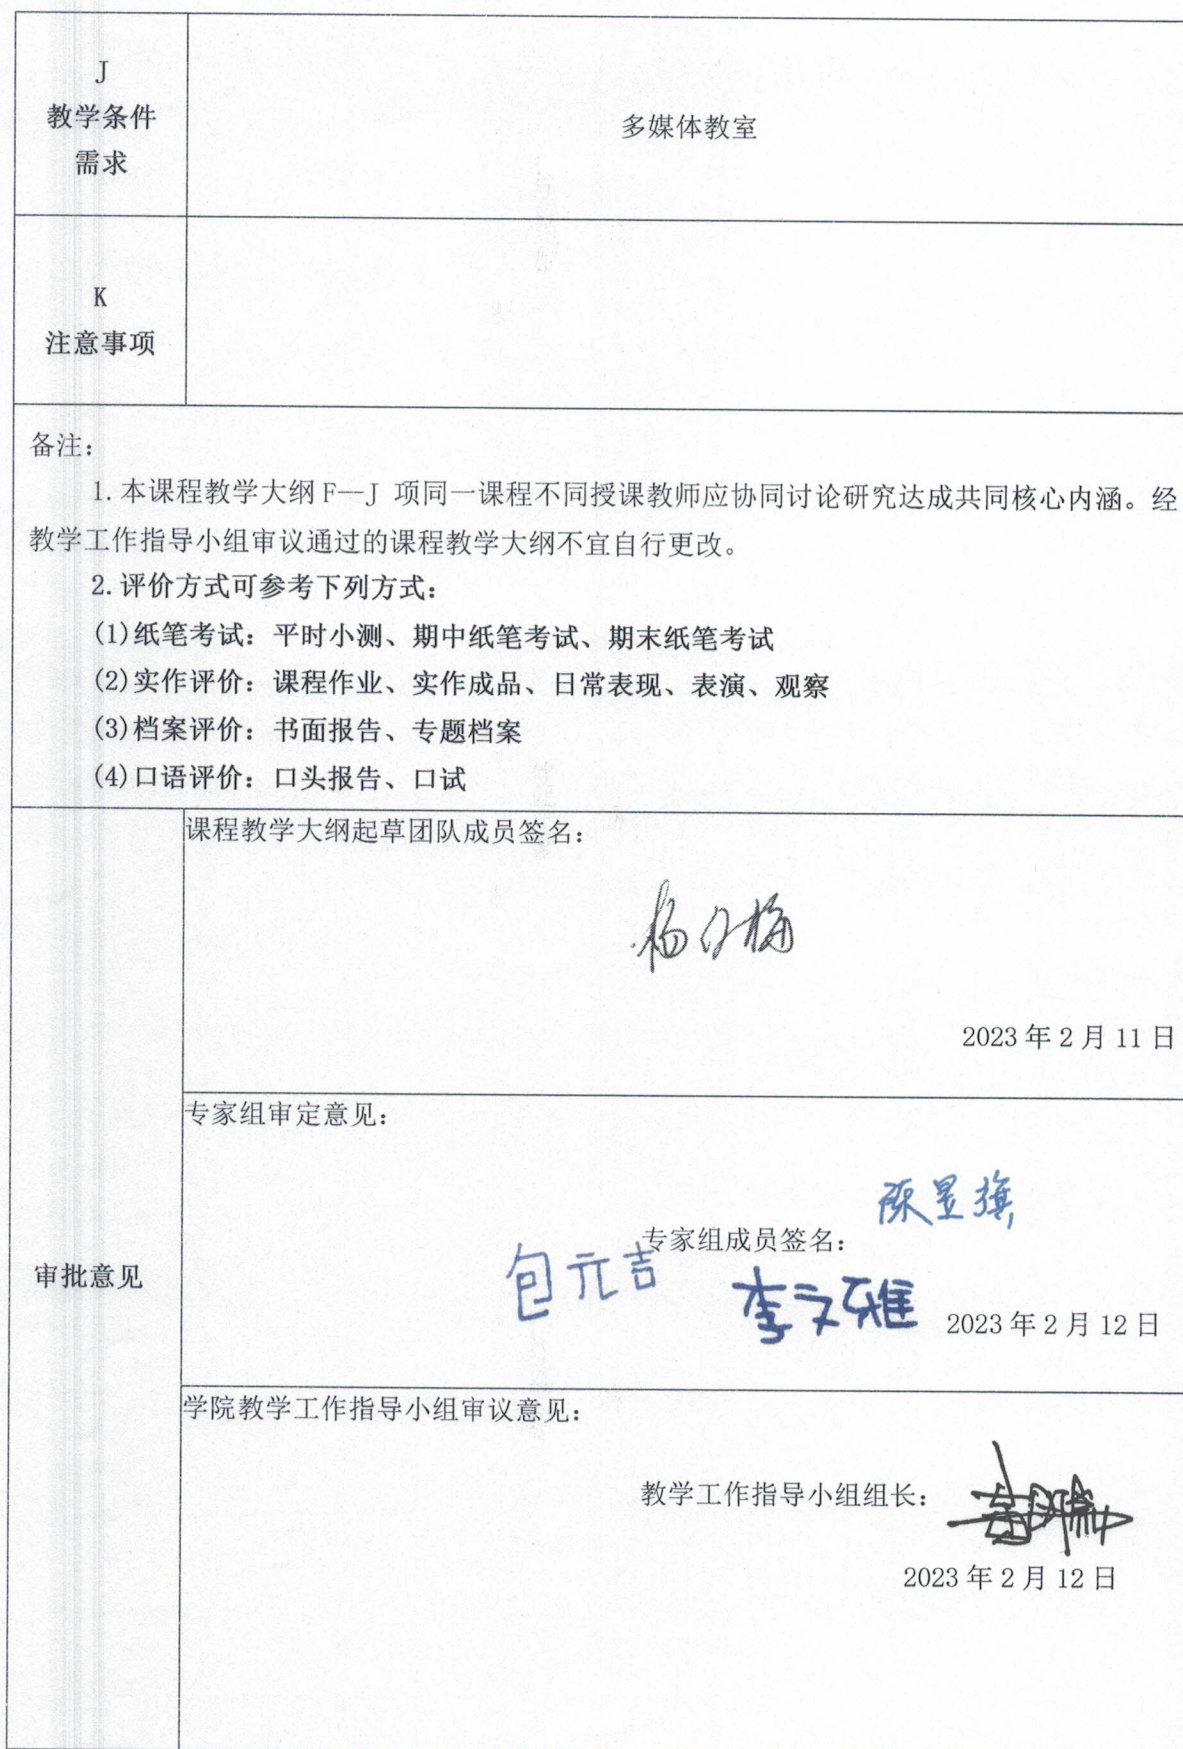 J
教学条件
需求
多媒体教室
K
注意事项
备注：
1. 本课程教学大纲 F—J 项同一课程不同授课教师应协同讨论研究达成共同核心内涵。经
教学工作指导小组审议通过的课程教学大纲不宜自行更改。
2. 评价方式可参考下列方式：
(1)纸笔考试：平时小测、期中纸笔考试、期末纸笔考试
(2)实作评价：课程作业、实作成品、日常表现、表演、观察
(3)档案评价：书面报告、专题档案
(4)口语评价：口头报告、口试
审批意见
课程教学大纲起草团队成员签名：
2023 年 2 月 11 日
专家组审定意见：
专家组成员签名：
包元吉
李文雅
2023 年 2 月 12 日
学院教学工作指导小组审议意见：
教学工作指导小组组长：
2023 年 2 月 12 日